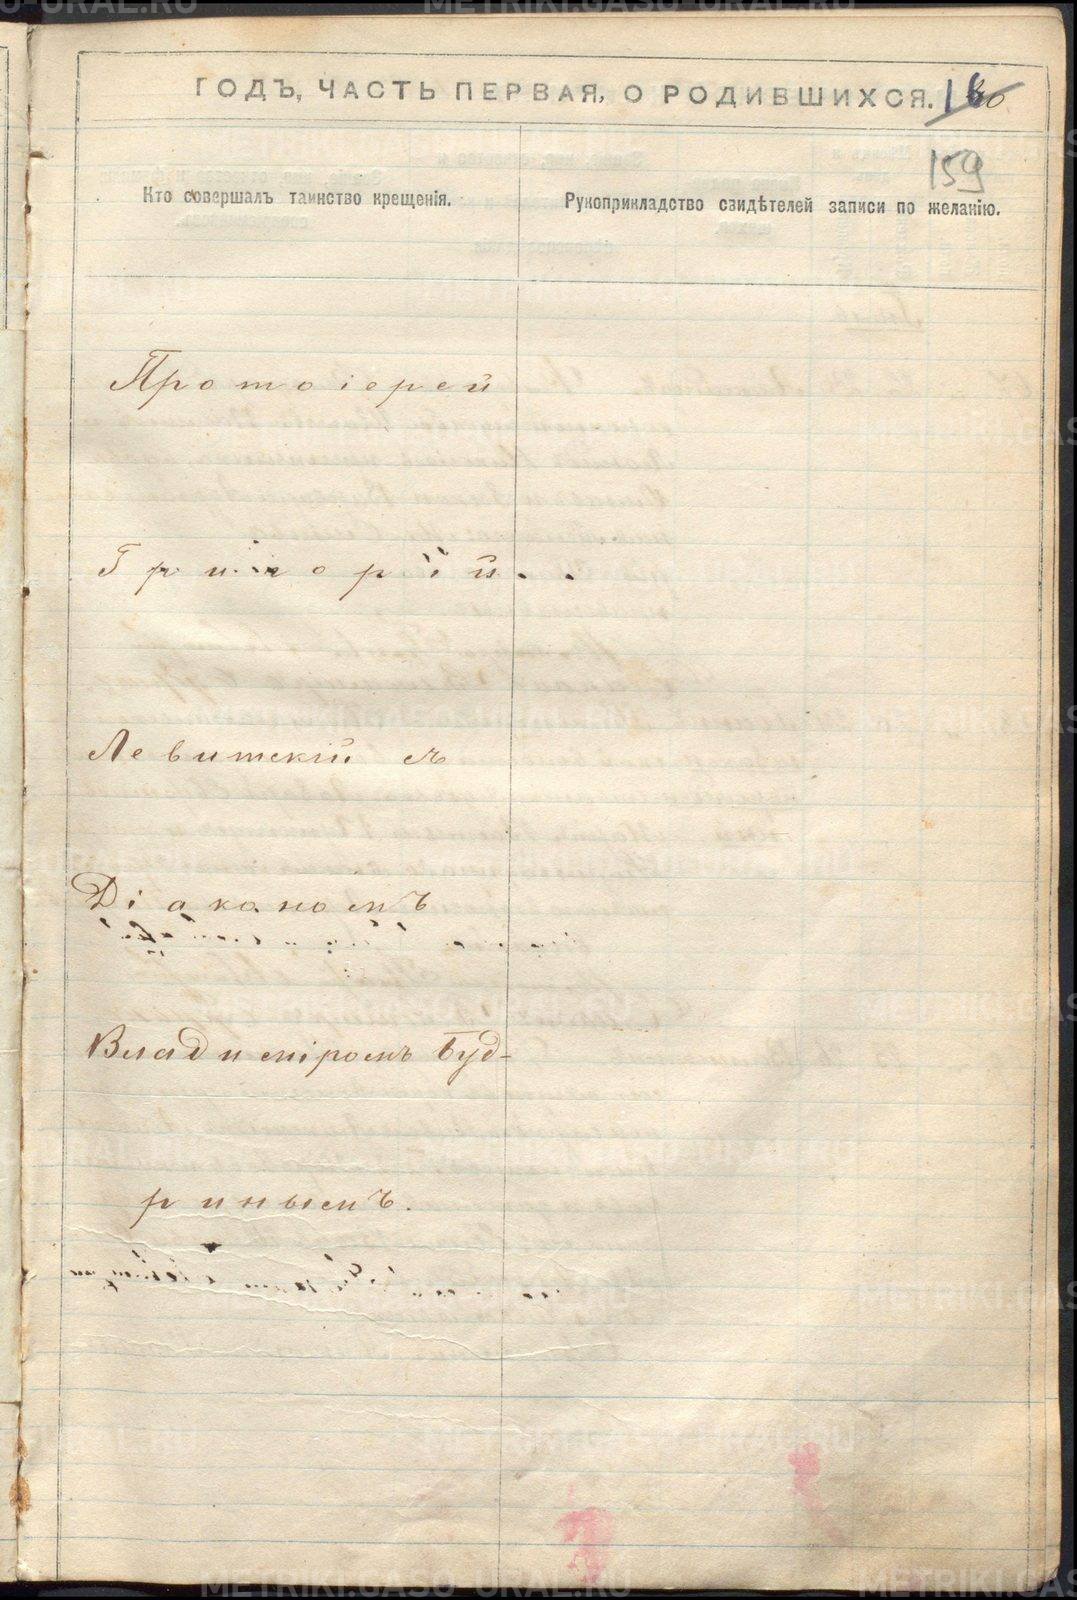 ГОДЪ, ЧАСТЬ ПЕРВАЯ, О РОДИВШИХСЯ.
159
Кто совершалъ таинство крещенія.
Рукоприкладство свидѣтелей записи по желанію.
Протоіерей
Григорій
Левитскій съ
Діакономъ
Владиміромъ Буд-
ринымъ.
METRIKI.GASO-URAL.RU